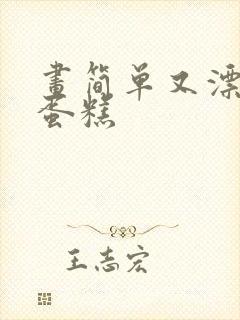 畫简单又漂
蛋糕
王志宏